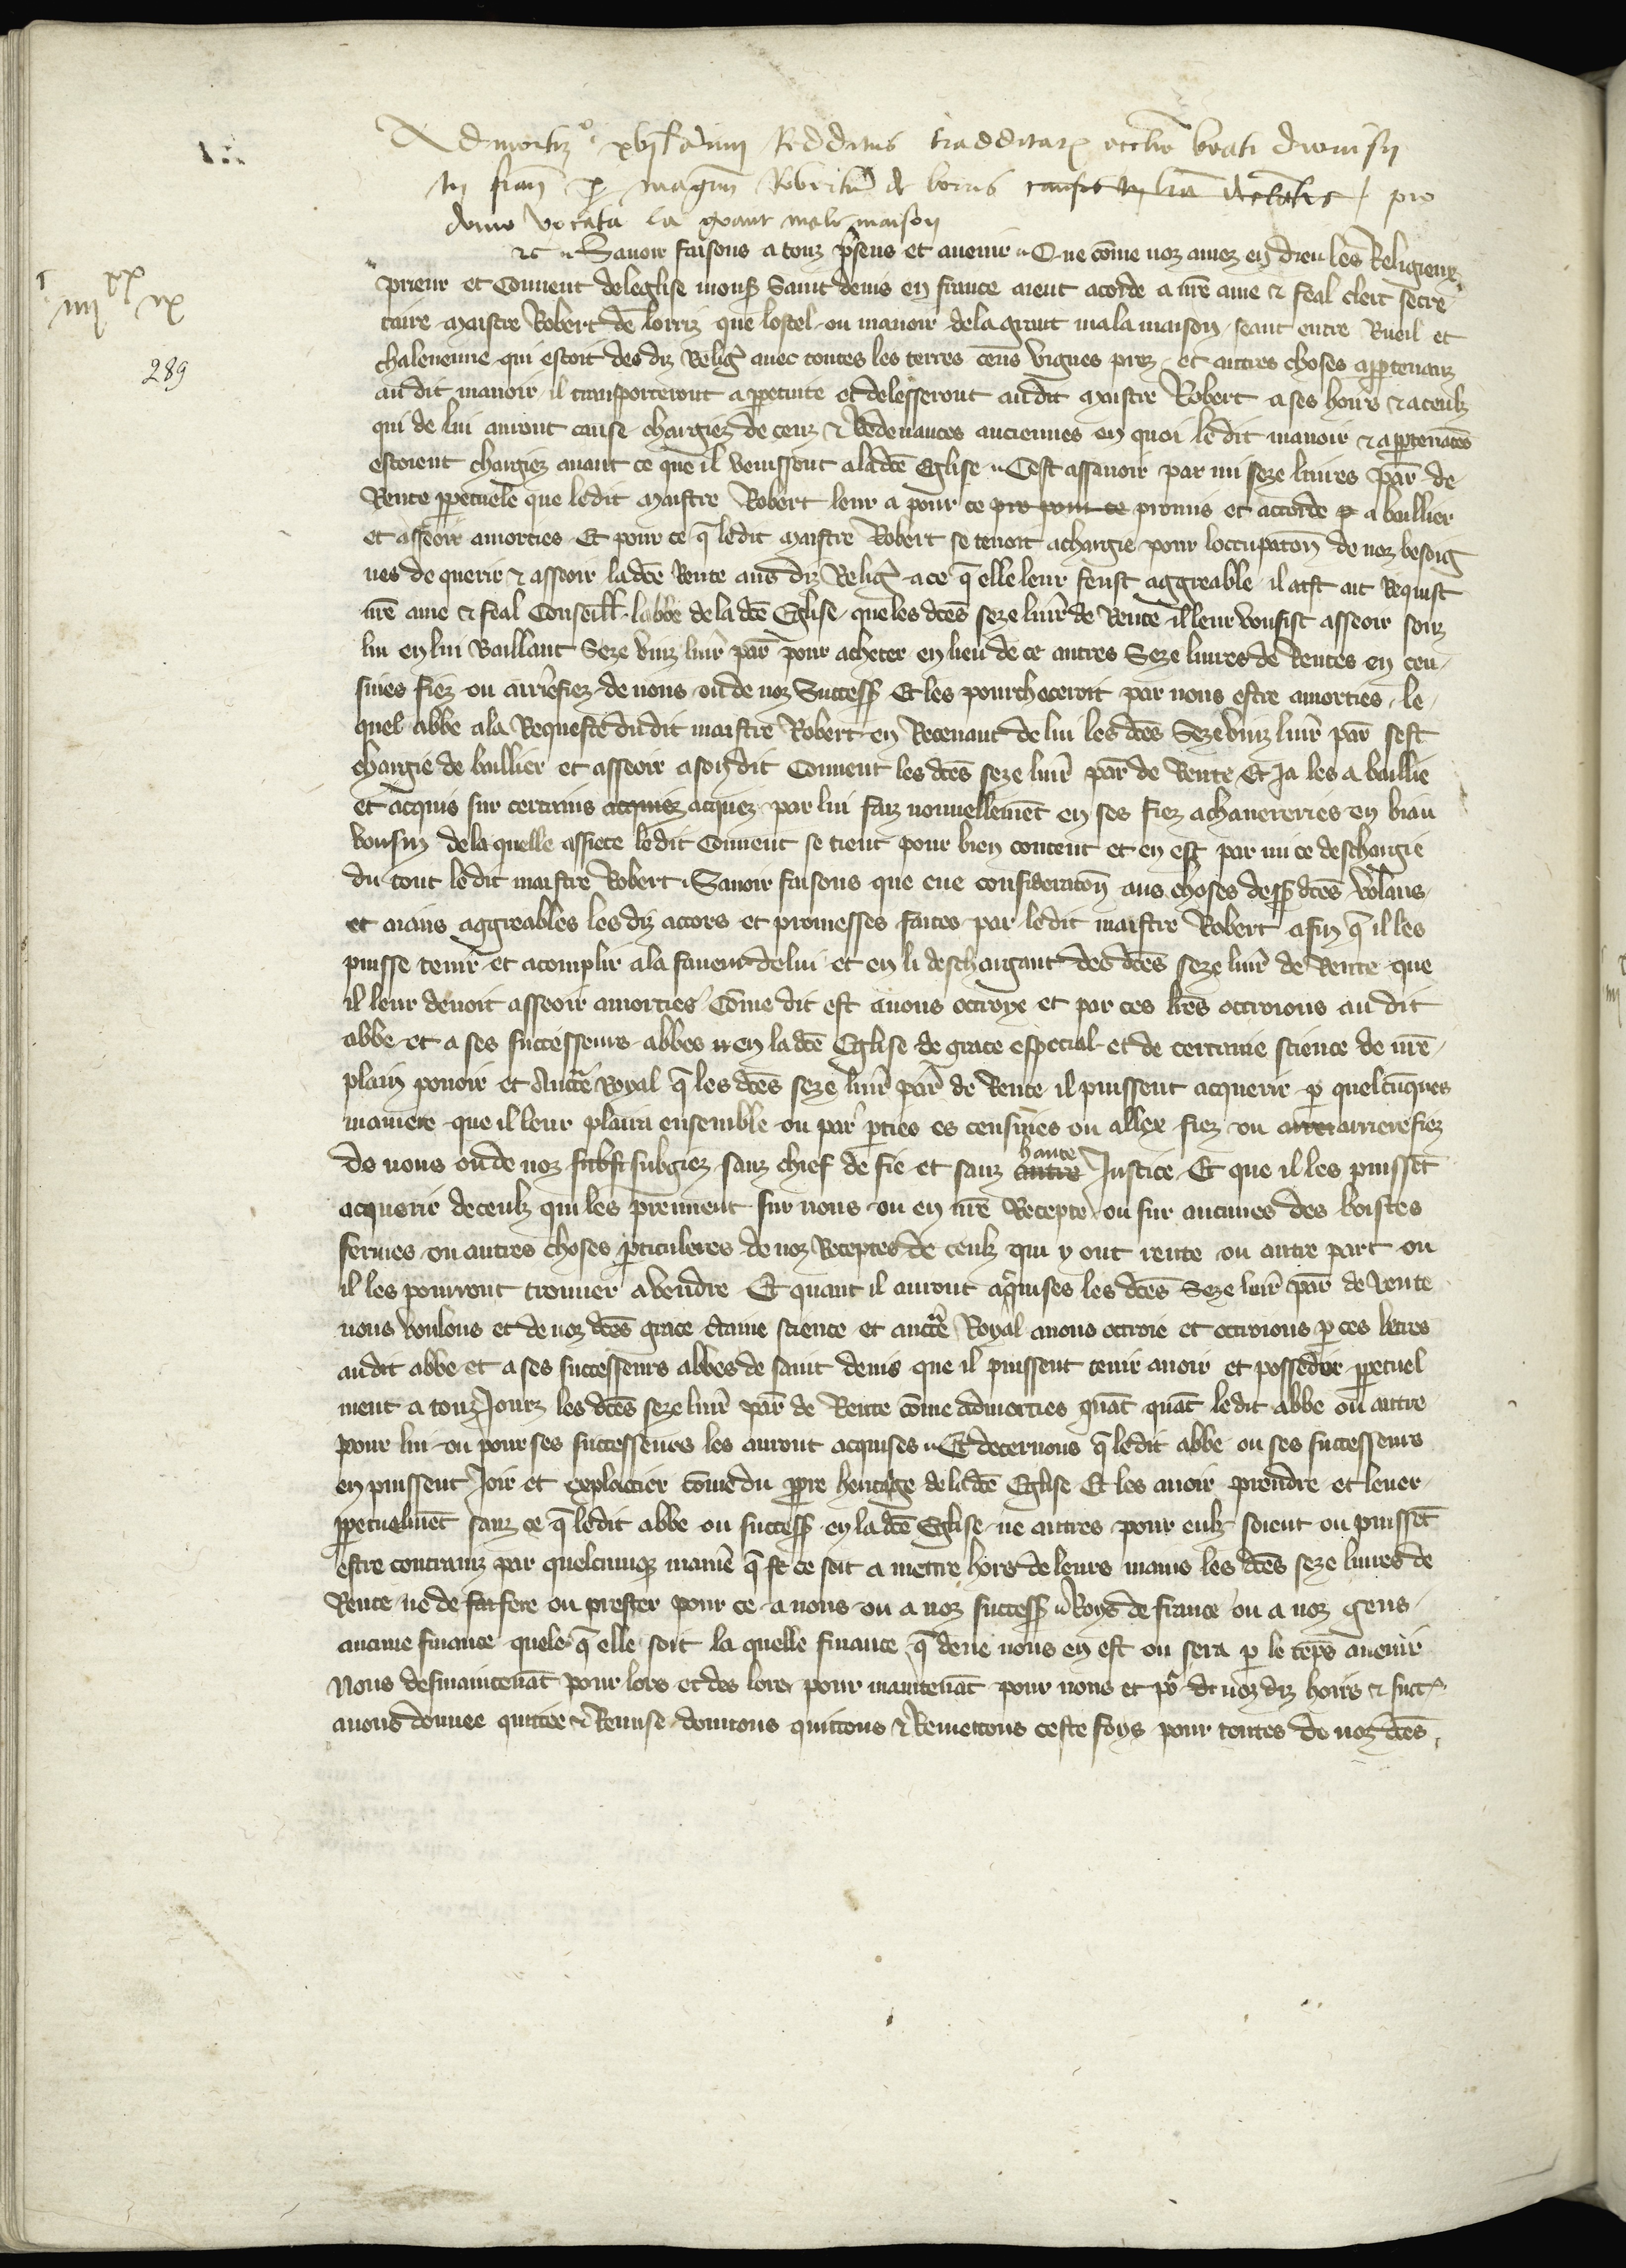 Admortiz͠o xvj lb͠ r annui Redditus traddita℞ eccl͠ie beati dionisij
in fran͠ p͠ mag͠rm Robertu͠ de lorris pro
domo vocata la grant male maison
⁊c Sauoir faisons a touz p͠sens et auenir Que co͠me noz amez en dieu les Religieux
j iiij xx ix
prieur et Conuent de leglise mons͠ Saint denis en france aient acorde a nr͠e ame ⁊ feal clerc secre
289
taire maistre Robert de lorriz que lostel ou manoir de la grant mala maison seant entre Rueil et
chaleuenne qui estoit des diz Relig͠ auec toutes les terres cens vignes prez et autres choses app͠tenanz
au dit manoir il transporteront a p͠petuite et delesseront au dit maistre Robert a ses hoirs ⁊ a ceulz
qui de lui auront cause chargiez de cenz ⁊ Redeuances anciennes en quoi le dit manoir ⁊ app͠tena͠ces
estoient chargiez auant ce que il venissent a la dc͠e Eglise Cest assauoir par mi seze liures par͠ de
Rente p͠petuele que ledit maistre Robert leur a pour ce pro pour ce promis et accorde p a baillier
et asseoir amorties Et pour ce q͠ ledit maistre Robert se tenoit a chargie pour loccupaton͠ de noz besoig
nes de querir ⁊ asseoir ladc͠e Rente aus diz Relig͠ a ce q͠ elle leur feust aggreable il ait Requist
nr͠e ame ⁊ feal Conseill͠ labbe de la dc͠e Eglise que les dc͠es seze liur͠ de Rente il leur vousist asseoir pour
lui en lui Baillant Seze vinz liur͠ par͠ pour acheter en lieu de ce autres Seze liures de Rentes en cen
siues fiez ou arrierefiez de nous ou de noz Success͠ Et les pourchaceroit par nous estre amorties le
quel abbe a la Requeste dudit maistre Robert en Receuant de lui les dc͠es Seze vinz liur͠ par͠ sest
chargie de baillier et asseoir a son dit Conuent les dc͠es seze liur͠ par͠ de Rente Et Ja les a baillie
et acquis sur certains acquiez acquez par lui faiz nouuellement en ses fiez a chauereries en biau
voisin de la quelle assiete ledit Conuent se tient pour bien content et en est par mi ce deschargie
du tout ledit maistre Robert Sauoir faisons que eue consideraton͠ aus choses dess͠ dc͠es volans
et aians aggreables les diz accors et promesses faites par ledit maistre Robert afin q͠ il les
puisse tenir et acomplir a la faueur de lui et en li deschargant des dc͠es seze liur͠ de Rente que
il leur deuoit asseoir amorties co͠me dit est auons octroye et par ces lr͠es octroions au dit
abbe et a ses successeurs abbes en la dc͠e Eglise de grace especial et de certaine science de nr͠e
plain pouoir et Auct͠e Royal q͠ les dc͠es seze liur͠ par͠ de Rente il puissent acquerir p͠ quelcu͠ques
maniere que il leur plaira ensemble ou par p͠ties es censiues ou allex fiez ou arrer arrierefiez
de nous ou de noz subst subgiez sanz chief de fie et sanz autre haute Justice Et que il les puisse͠t
acquerir de ceulz qui les prennent sur nous ou en nr͠e Recepte ou sur aucunes des boistes
fermes ou autres choses p͠ticuleres de noz Receptes de ceulz qui y ont rente ou autre part ou
il les pourront trouuer a vendre Et quant il auront aq͠uises les dc͠es Seze liur͠ par͠ de rente
nous voulons et de noz dc͠es grace c͠taine science et auct͠e Royal auons octroie et octroions p͠ ces letres
audit abbe et a ses successeurs abbes de saint denis que il puissent tenir auoir et posseder p͠petuel
ment a touz Jourz les dc͠es seze liur͠ par͠ de Rente co͠me admorties qua͠t qua͠t ledit abbe ou autre
pour lui ou pour ses successeurs les auront acquises Et decernons q͠ ledit abbe ou ses successeurs
en puissent Joir et explaitier co͠me du p͠pre heritage de la dc͠e Eglise Et les auoir prendre et leuer
p͠petuelme͠t sanz ce q͠ ledit abbe ou success͠ en la dc͠e Eglise ne autres pour eulz soient ou puisse͠t
estre contrainz par quelcunq͠ manie͠ q͠ st ce soit a mettre hors de leurs mains les dc͠es seze liures de
Rente ne de fai fere ou prester pour ce a nous ou a noz success͠ Roys de france ou a noz gens
aucune finance quele q͠ elle soit la quelle finance q͠ deue nous en est ou sera p͠ le te͠ps auenir
Nous desmaintena͠t pour lors et des lors pour maintena͠t pour nous et po͠ noz diz hoirs ⁊ succ͠
auons donnee quittee ⁊ Remise donnons quittons ⁊ Remettons ceste foys pour toutes de noz dc͠es